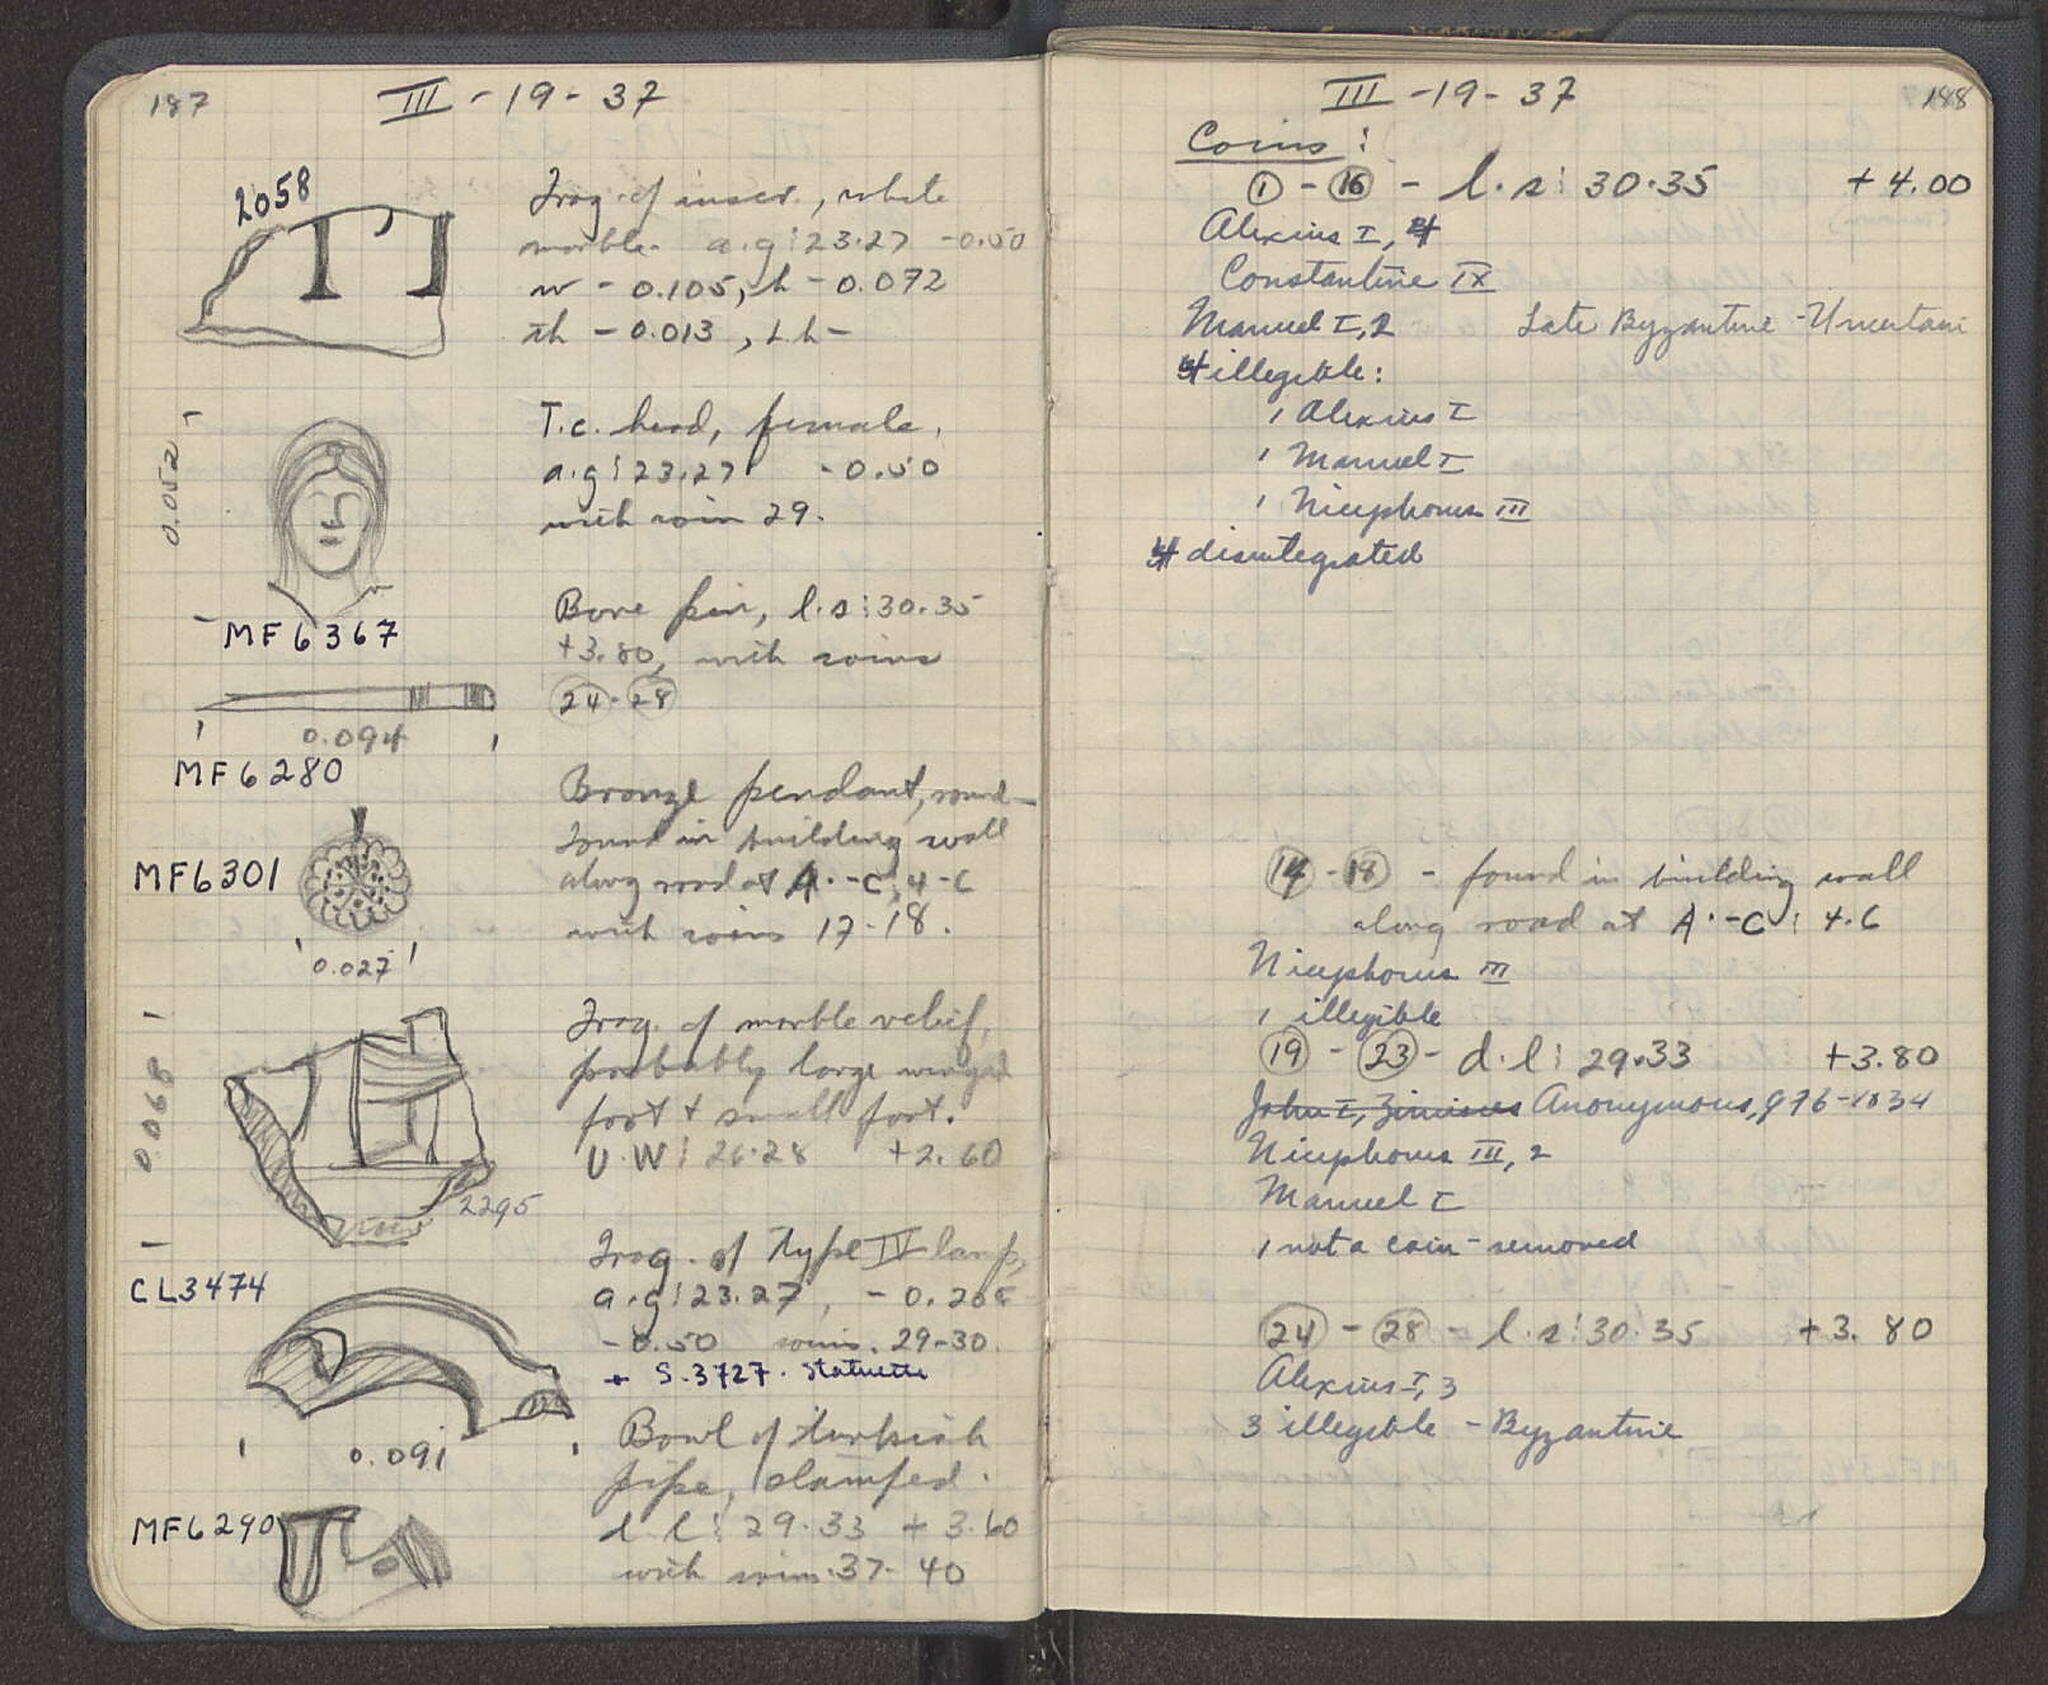 187
III - 19 - 37
2058
Frag. of inscr., white
marble. a.g: 23.27 -0.50
w - 0.105, h - 0.072
th - 0.013, L.h -
0.052
T.c. head, female,
a.g: 23.27 -0.50
with coin 29.
MF6367
Bone pin, l.s: 30.35
+3.80, with coins
24 - 28
0.094
MF6280
Bronze pendant, round -
found in building wall
along road at A.-C: 4-6
with coins 17-18.
MF6301
0.027
Frag. of marble relief,
probably large winged
foot + small foot.
U.W: 26.28 +2.60
0.068
2295
Frag. of Type IV lamp,
a.g: 23.27, - 0.20
- 0.50 coins. 29-30.
+ S.3727. Statuette
CL3474
0.091
Bowl of turkish
pipe, stamped.
d.l: 29.33 + 3.60
with coins 37-40
MF6290
188
III - 19 - 37
Coins:
1 - 16 - l.s: 30.35 +4.00
Alexius I, 4
Constantine IX
Manuel I, 2 Late Byzantine - Uncertain
illegible:
1 Alexius I
1 Manuel I
1 Nicephorus III
disintegrated
17 - 18 - found in building wall
along road at A.-C: 4.6
Nicephorus III
1 illegible
19 - 23 - d.l: 29.33 +3.80
John I, Zimisces Anonymous, 976-1034
Nicephorus III, 2
Manuel I
1 not a coin - removed
24 - 28 - l.s: 30.35 +3.80
Alexius I, 3
3 illegible - Byzantine